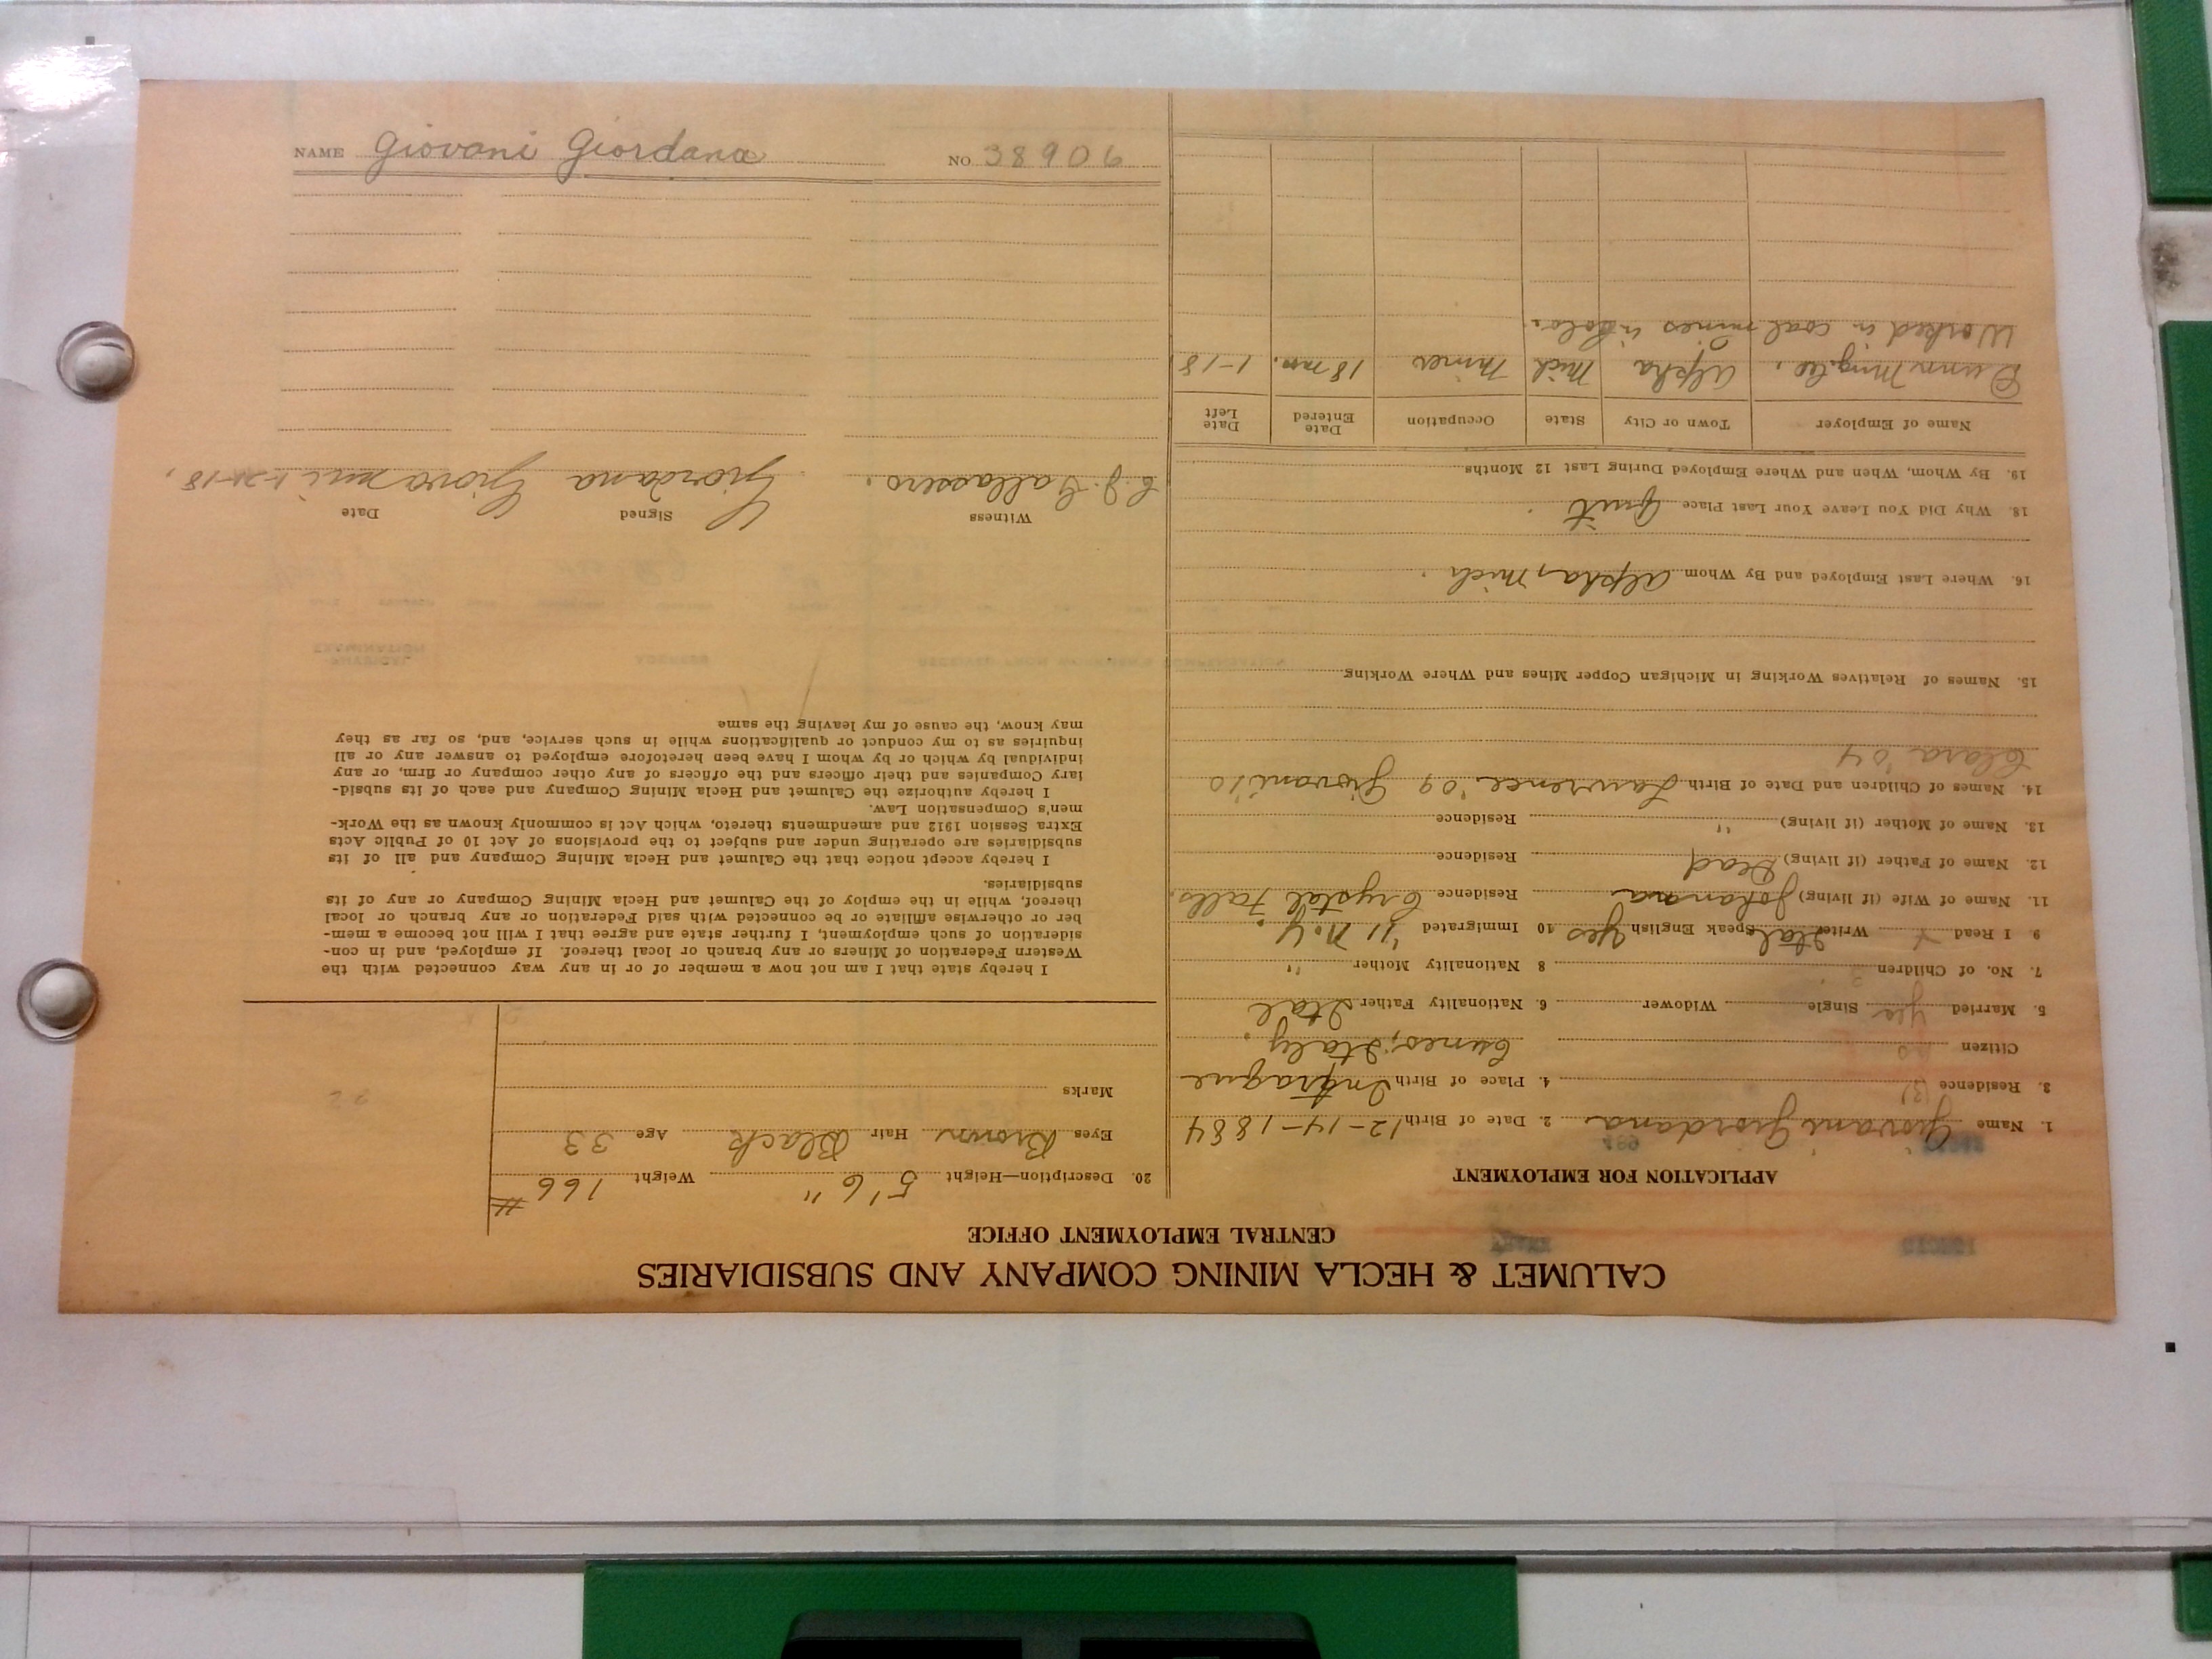 NAME Giovani Giordana NO 38906
CALUMET & HECLA MINING COMPANY AND SUBSIDIARIES
CENTRAL EMPLOYMENT OFFICE
APPLICATION FOR EMPLOYMENT
1. Name Giovani Giordana 2. Date of Birth 12-14-1884
3. Residence 4. Place of Birth Intragne
Citizen no Cuneo, Italy.
5. Married yes Single Widower 6. Nationality Father Ital
7. No. of Children 3 8 Nationality Mother "
9. I Read Write Ital Speak English yes 10 Immigrated '11 N.Y.
11. Name of Wife (if living) Johanna Residence Crystal Falls.
12. Name of Father (if living) Dead Residence
13. Name of Mother (if living) " Residence
14. Names of Children and Date of Birth Lawrence '09 Giovani '10
Clara '04
15. Names of Relatives Working in Michigan Copper Mines and Where Working
16. Where Last Employed and By Whom Alpha, Mich.
18. Why Did You Leave Your Last Place Quit
19. By Whom, When and Where Employed During Last 12 Months
Name of Employer Town or City State Occupation Date Entered Date Left
Alpha Mich Miner 18 mo. 1-18
Worked in coal mines in Colo.
20. Description—Height 5'6" Weight 166 #
Eyes Brown Hair Black Age 33
Marks
I hereby state that I am not now a member of or in any way connected with the
Western Federation of Miners or any branch or local thereof. If employed, and in con-
sideration of such employment, I further state and agree that I will not become a mem-
ber or otherwise affiliate or be connected with said Federation or any branch or local
thereof, while in the employ of the Calumet and Hecla Mining Company or any of its
subsidiaries.
I hereby accept notice that the Calumet and Hecla Mining Company and all of its
subsidiaries are operating under and subject to the provisions of Act 10 of Public Acts
Extra Session 1912 and amendments thereto, which Act is commonly known as the Work-
men's Compensation Law.
I hereby authorize the Calumet and Hecla Mining Company and each of its subsid-
iary Companies and their officers and the officers of any other company or firm, or any
individual by which or by whom I have been heretofore employed to answer any or all
inquiries as to my conduct or qualifications while in such service, and, so far as they
may know, the cause of my leaving the same
Witness Signed Date
C. J. Gallassero. Giordana Giovanni 1-21-18.